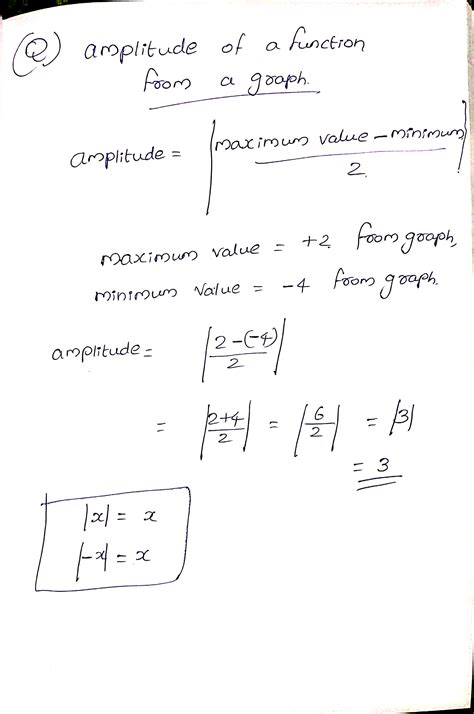 (Q) amplitude of a function
from a graph.
amplitude = |maximum value - minimum / 2|
maximum value = +2 from graph,
minimum value = -4 from graph.
amplitude = |2-(-4) / 2|
= |2+4 / 2| = |6 / 2| = |3|
= 3
|x| = x
|-x| = x